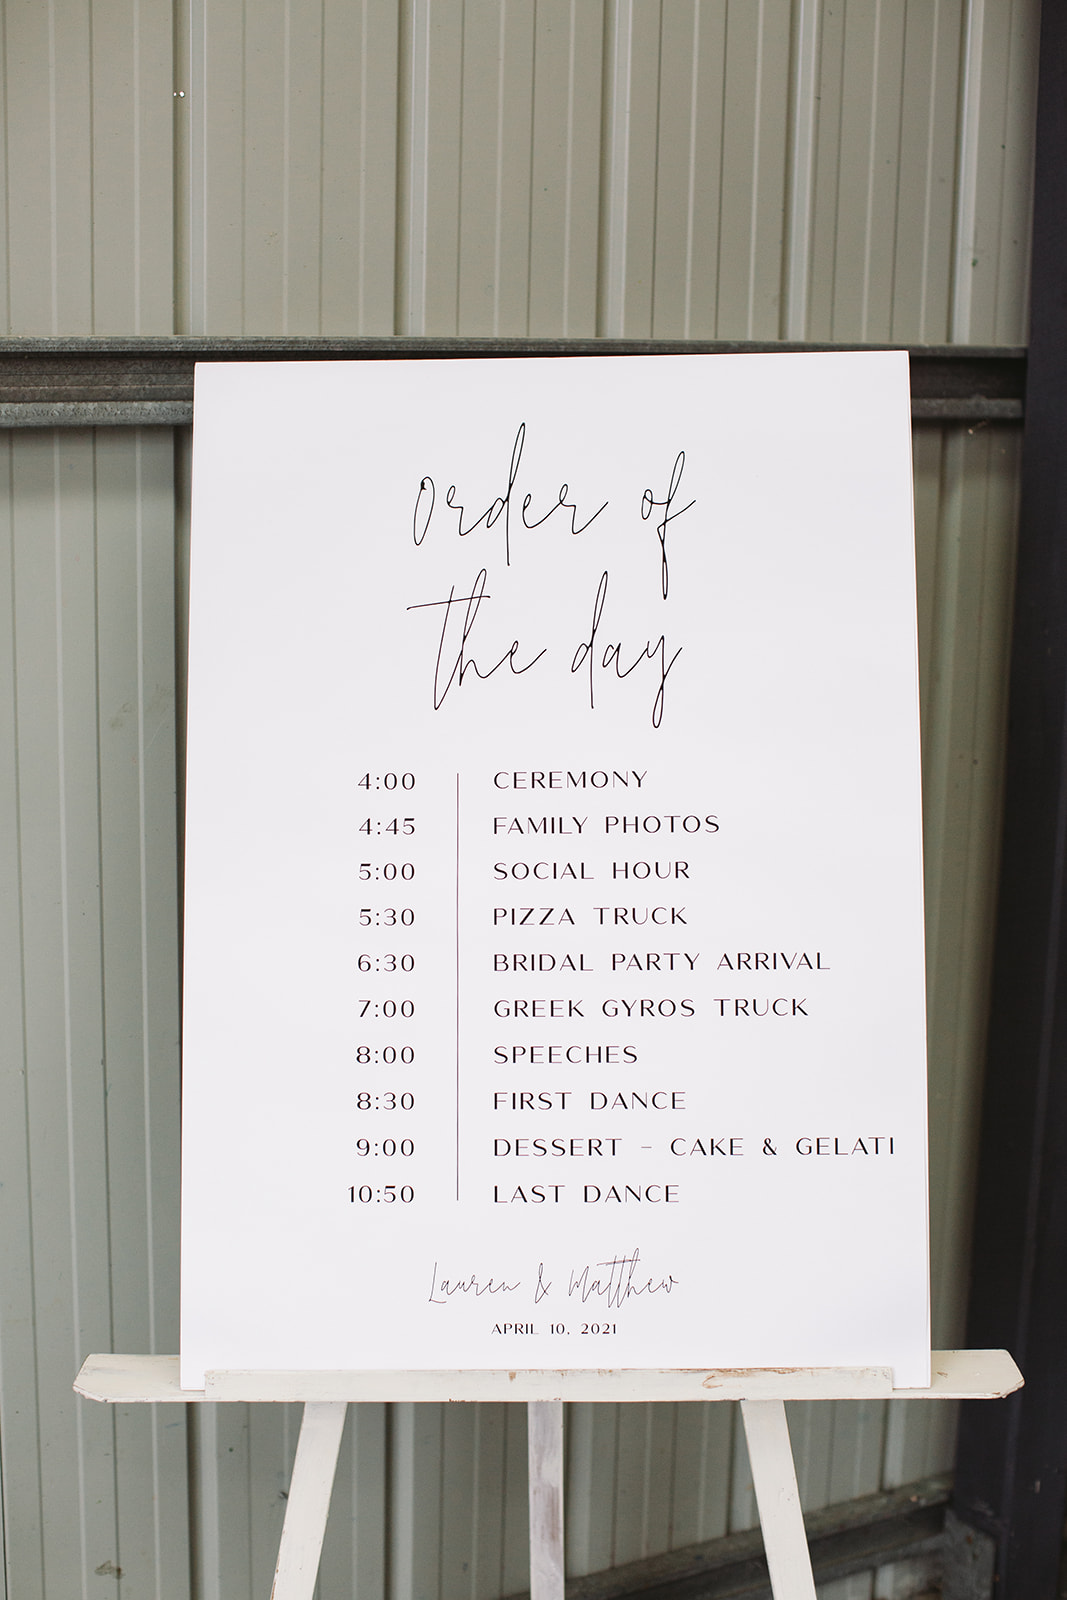 Order of
the day
4:00 CEREMONY
4:45 FAMILY PHOTOS
5:00 SOCIAL HOUR
5:30 PIZZA TRUCK
6:30 BRIDAL PARTY ARRIVAL
7:00 GREEK GYROS TRUCK
8:00 SPEECHES
8:30 FIRST DANCE
9:00 DESSERT - CAKE & GELATI
10:50 LAST DANCE
Lauren & Matthew
APRIL 10, 2021